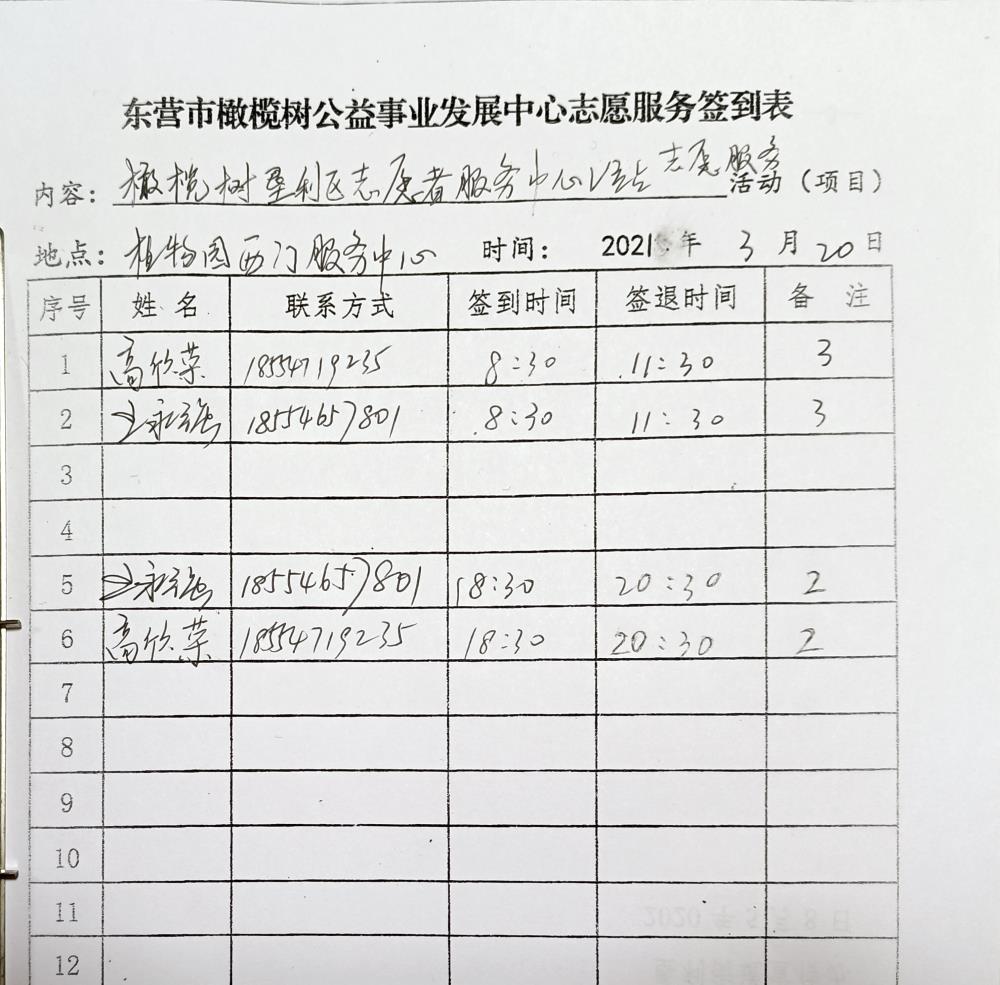 东营市橄榄树公益事业发展中心志愿服务签到表
内容：橄榄树垦利区志愿者服务中心 志愿服务活动（项目）
地点：植物园西门服务中心 时间： 2021年 3月20日
序号 姓名 联系方式 签到时间 签退时间 备注
1 高欣荣 18554719235 8:30 11:30 3
2 王永强 18554657801 8:30 11:30 3
3
4
5 王永强 18554657801 18:30 20:30 2
6 高欣荣 18554719235 18:30 20:30 2
7
8
9
10
11
12